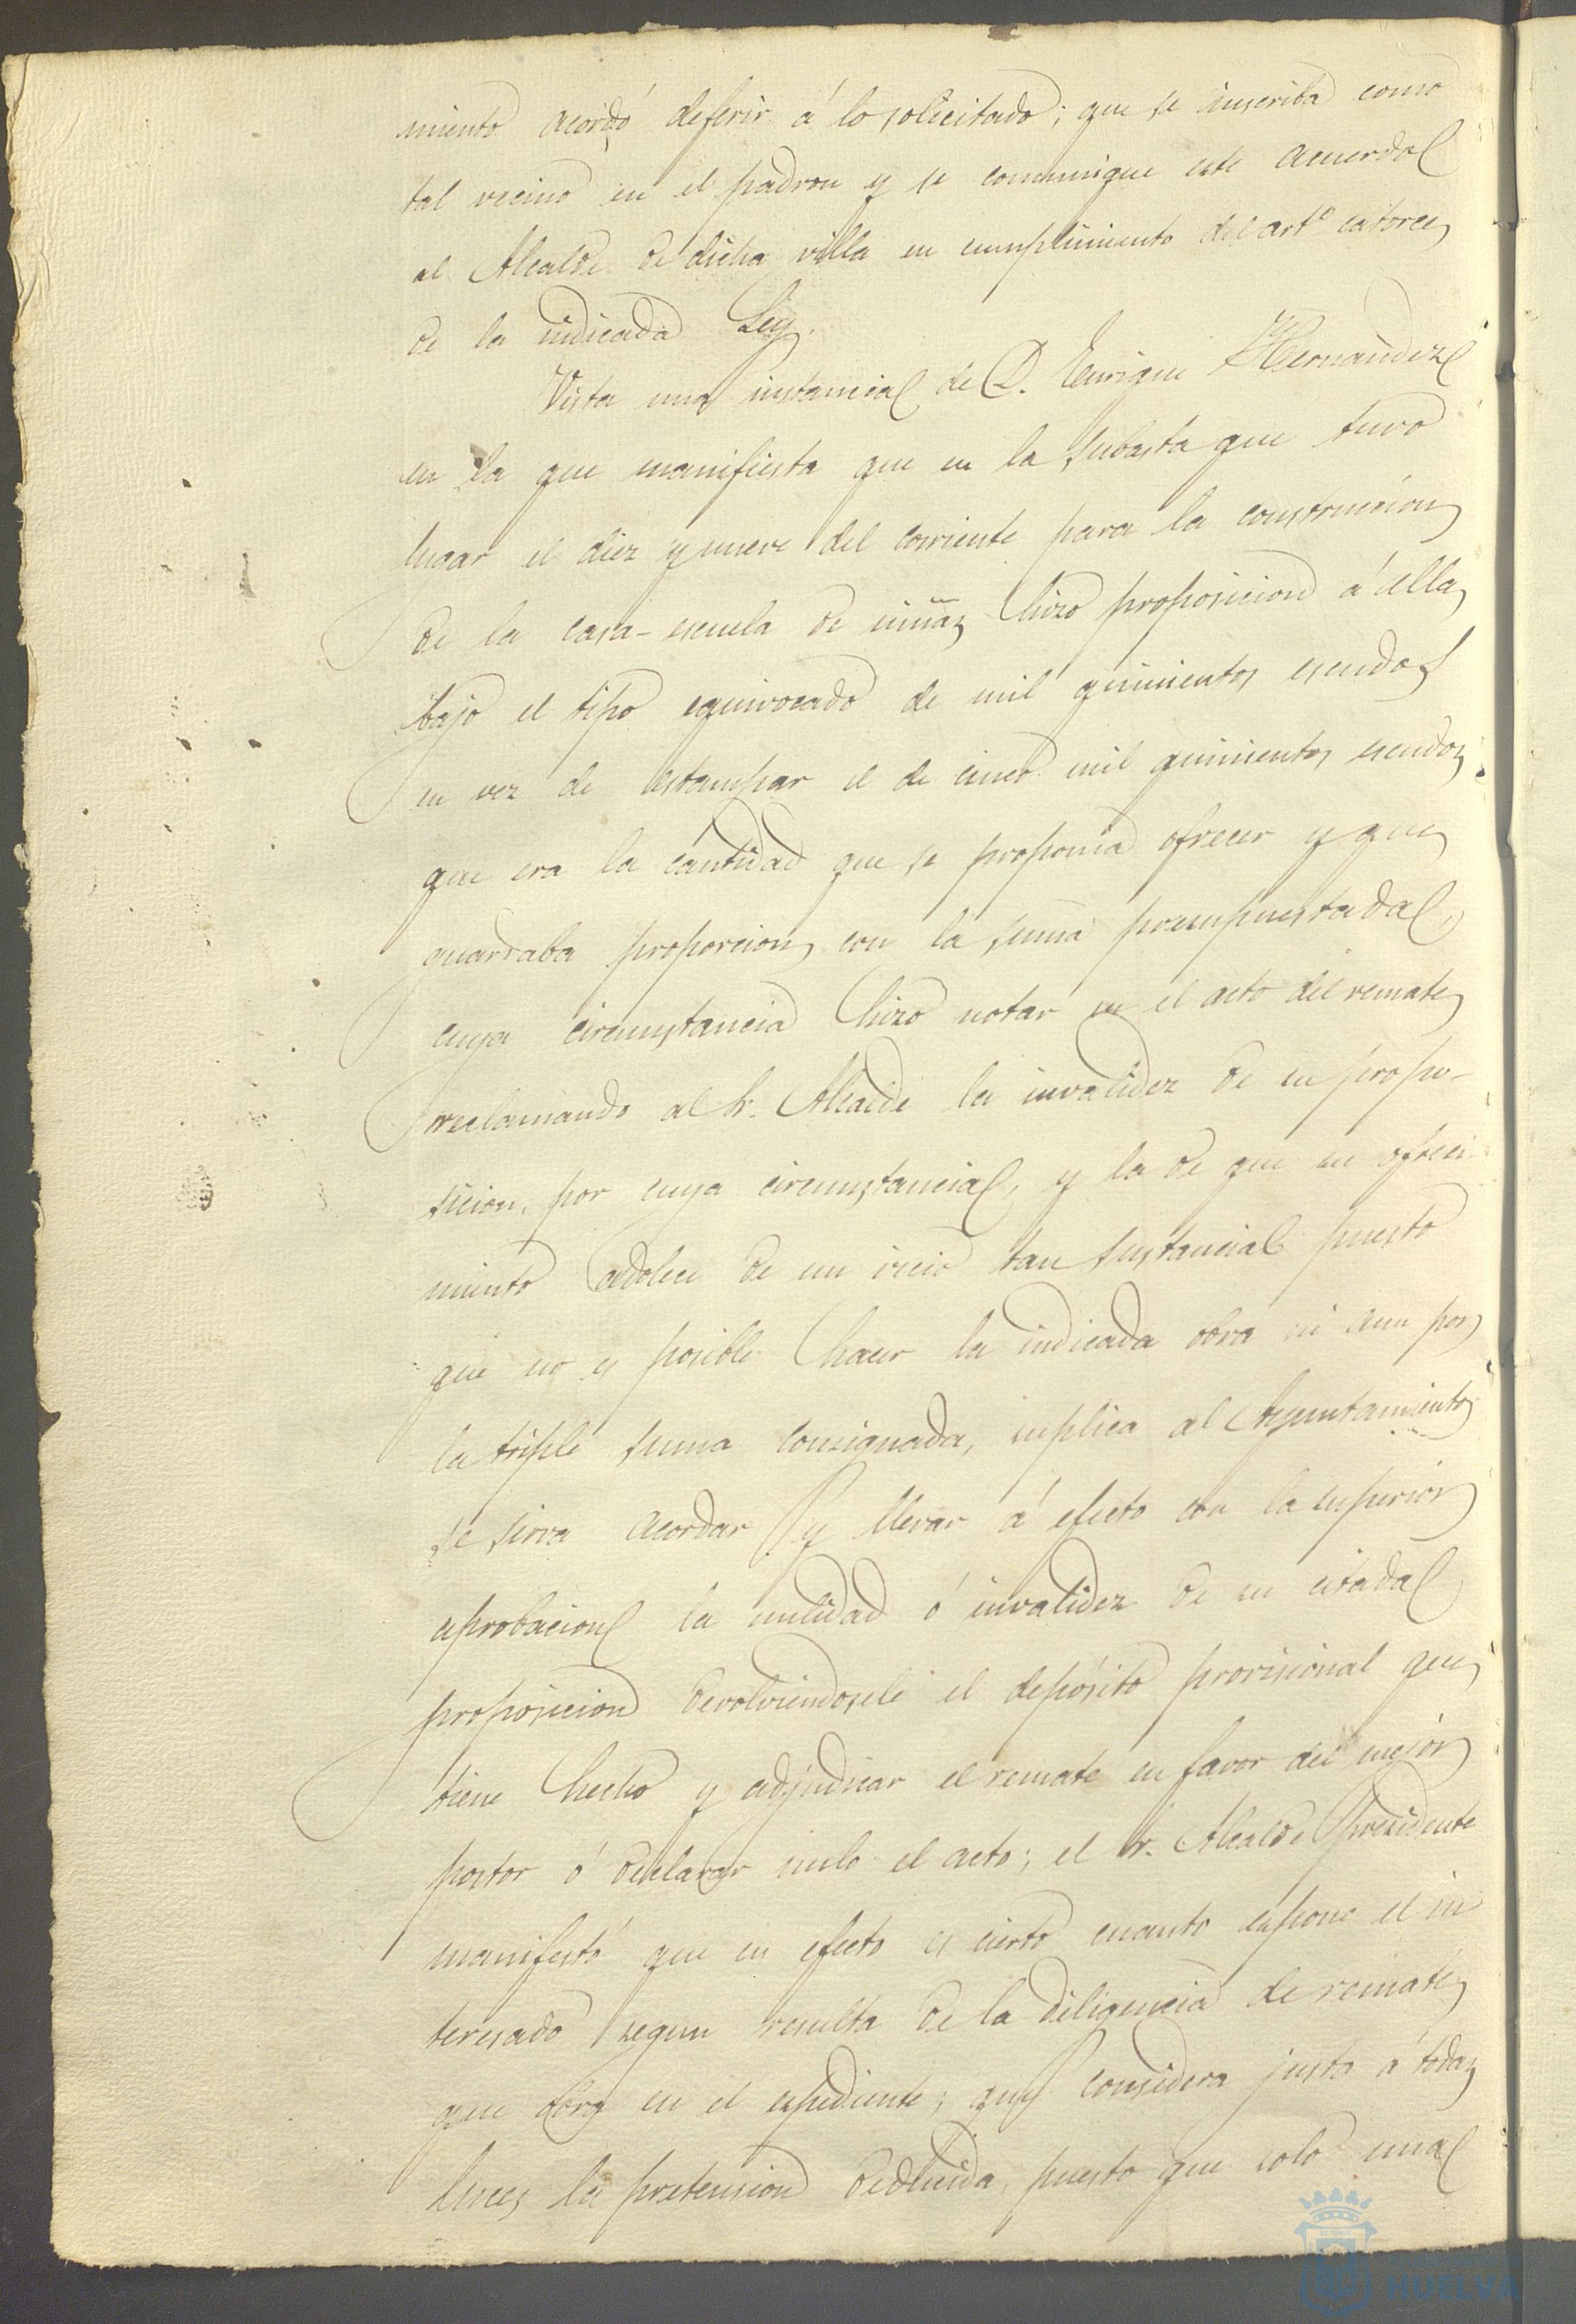 miento acordó deferir á lo solicitado; que se inscriba como
tal vecino en el padron y se comunique este acuerdo
al Alcalde de dicha villa en cumplimiento del artº catorce
de la indicada Ley.
Vista una instancia de D. Enrique Hernandez
en la que manifiesta que en la subasta que tuvo
lugar el diez y nueve del corriente para la construccion
de la casa-escuela de niñas hizo proposicion á ella
bajo el tipo equivocado de mil quinientos escudos
en vez de estampar el de cinco mil quinientos escudos
que era la cantidad que se proponia ofrecer y que
guardaba proporcion con la suma presupuestada,
cuya circunstancia hizo notar en el acto del remate
reclamando al Sr. Alcalde la invalidez de su propo-
sicion, por cuya circunstancia, y la de que su ofreci
miento adolece de un vicio tan sustancial puesto
que no es posible hacer la indicada obra ni aun por
la triple suma consignada, suplica al Ayuntamiento
se sirva acordar y llevar á efecto con la superior
aprobacion la nulidad ó invalidez de su citada
proposicion devolviendosele el depósito provisional que
tiene hecho y adjudicar el remate en favor del mejor
postor ó declarar nulo el acto; el Sr. Alcalde Presidente
manifestó que en efecto es cierto cuanto espone el in
teresado segun resulta de la diligencia de remate
que obra en el espediente; que considera justa á todas
luces la pretension deducida, puesto que solo una
HUELVA